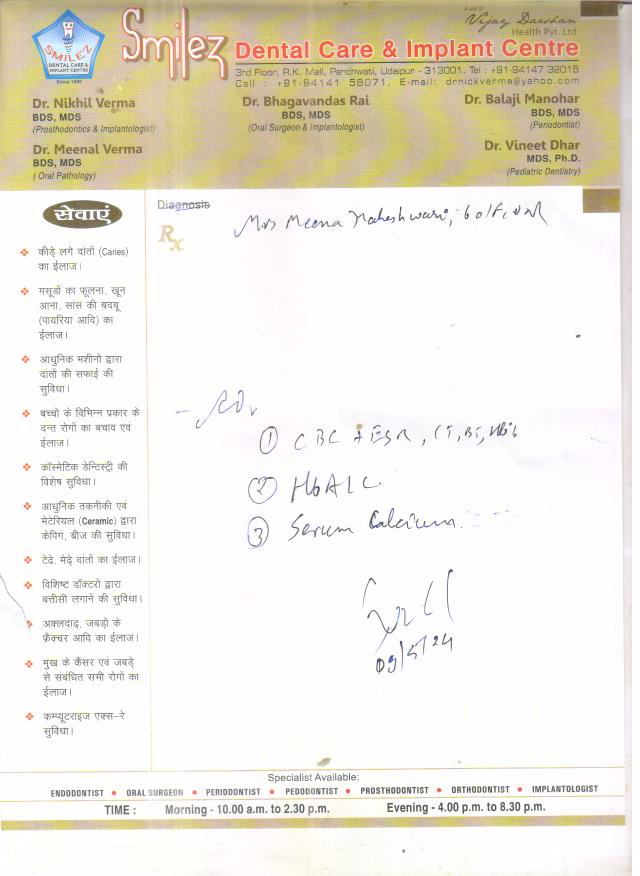 SMILEZ
DENTAL CARE &
IMPLANT CENTRE
Since 1995
Smilez
Vijay Darshan
Health Pvt. Ltd.
Dental Care & Implant Centre
3rd Floor, R.K. Mall, Panchwati, Udaipur - 313001, Tel : +91-94147 32015
Cell : +91-94141 58071, E-mail: drnickverma@yahoo.com
Dr. Nikhil Verma
BDS, MDS
(Prosthodontics & Implantologist)
Dr. Meenal Verma
BDS, MDS
( Oral Pathology)
Dr. Bhagavandas Rai
BDS, MDS
(Oral Surgeon & Implantologist)
Dr. Balaji Manohar
BDS, MDS
(Periodontist)
Dr. Vineet Dhar
MDS, Ph.D.
(Pediatric Dentistry)
सेवाएं
कीड़े लगे दांतों (Caries)
का ईलाज।
मसूडों का फूलना, खून
आना, सांस की बदबू
(पायरिया आदि) का
ईलाज।
आधुनिक मशीनो द्वारा
दांतों की सफाई की
सुविधा।
बच्चों के विभिन्न प्रकार के
दन्त रोगों का बचाव एवं
ईलाज।
कॉस्मेटिक डेन्टिस्ट्री की
विशेष सुविधा।
आधुनिक तकनीकी एवं
मेटेरियल (Ceramic) द्वारा
केपिगं, ब्रीज की सुविधा।
टेढे, मेढ़े दांतों का ईलाज।
विशिष्ट डॉक्टरों द्वारा
बत्तीसी लगानें की सुविधा।
अक्लदाढ़, जबड़ों के
फ्रैक्चर आदि का ईलाज।
मुख के कैंसर एवं जबड़े
से संबंधित सभी रोगों का
ईलाज।
कम्प्यूटराइज एक्स-रे
सुविधा।
Diagnosis
Rx
Mrs Meena Maheshwari, 60/F,
- Adv
① CBC + ESR, CT, BT, Hb%
② HbA1C
③ Serum Calcium
09/5/24
Specialist Available:
ENDODONTIST • ORAL SURGEON • PERIODONTIST • PEDODONTIST • PROSTHODONTIST • ORTHODONTIST • IMPLANTOLOGIST
TIME : Morning - 10.00 a.m. to 2.30 p.m. Evening - 4.00 p.m. to 8.30 p.m.